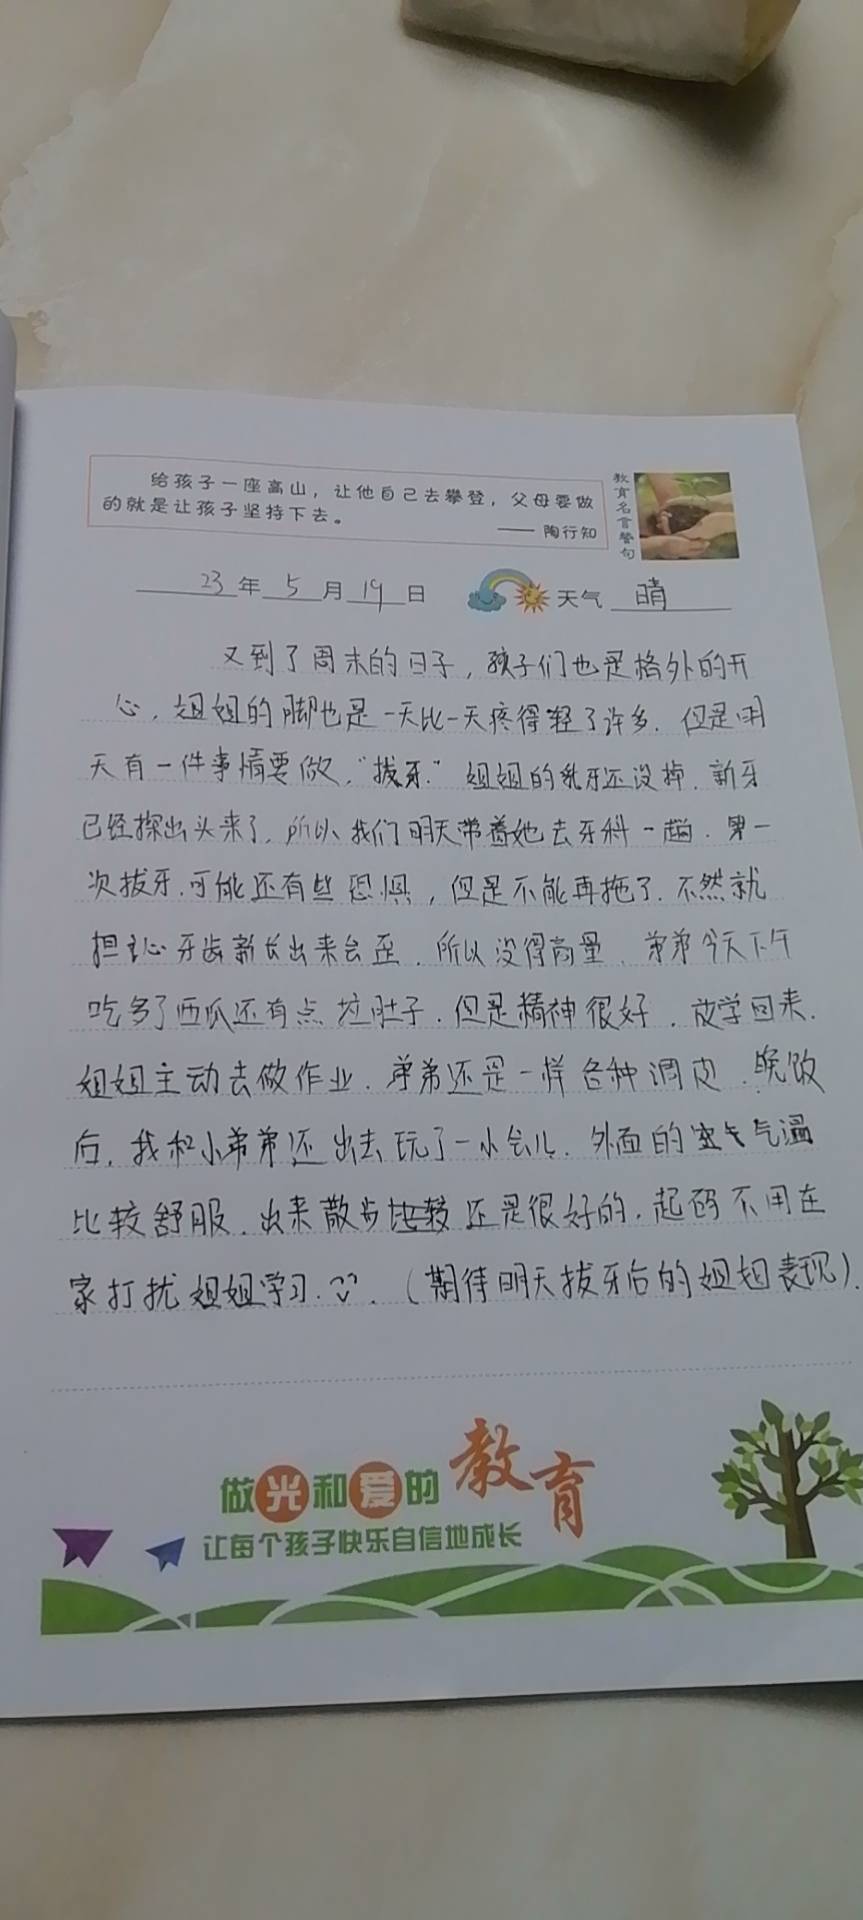 给孩子一座高山，让他自己去攀登，父母要做
的就是让孩子坚持下去。
—— 陶行知
教育名言警句
23年5月19日 天气 晴
又到了周末的日子，孩子们也是格外的开
心，姐姐的脚也是一天比一天疼得轻了许多．但是明
天有一件事情要做，"拔牙．"姐姐的乳牙还没掉．新牙
已经探出头来了．所以、我们明天带着她去牙科一趟．第一
次拔牙．可能还有些恐惧，但是不能再拖了．不然就
担心牙齿新长出来会歪．所以没得商量．弟弟今天下午
吃多了西瓜还有点拉肚子．但是精神很好．放学回来．
姐姐主动去做作业．弟弟还是一样各种调皮．晚饭
后．我和小弟弟还出去玩了一小会儿．外面的空气气温
比较舒服．出来散步比较还是很好的．起码不用在
家打扰姐姐学习．（期待明天拔牙后的姐姐表现）．
做光和爱的教育
让每个孩子快乐自信地成长